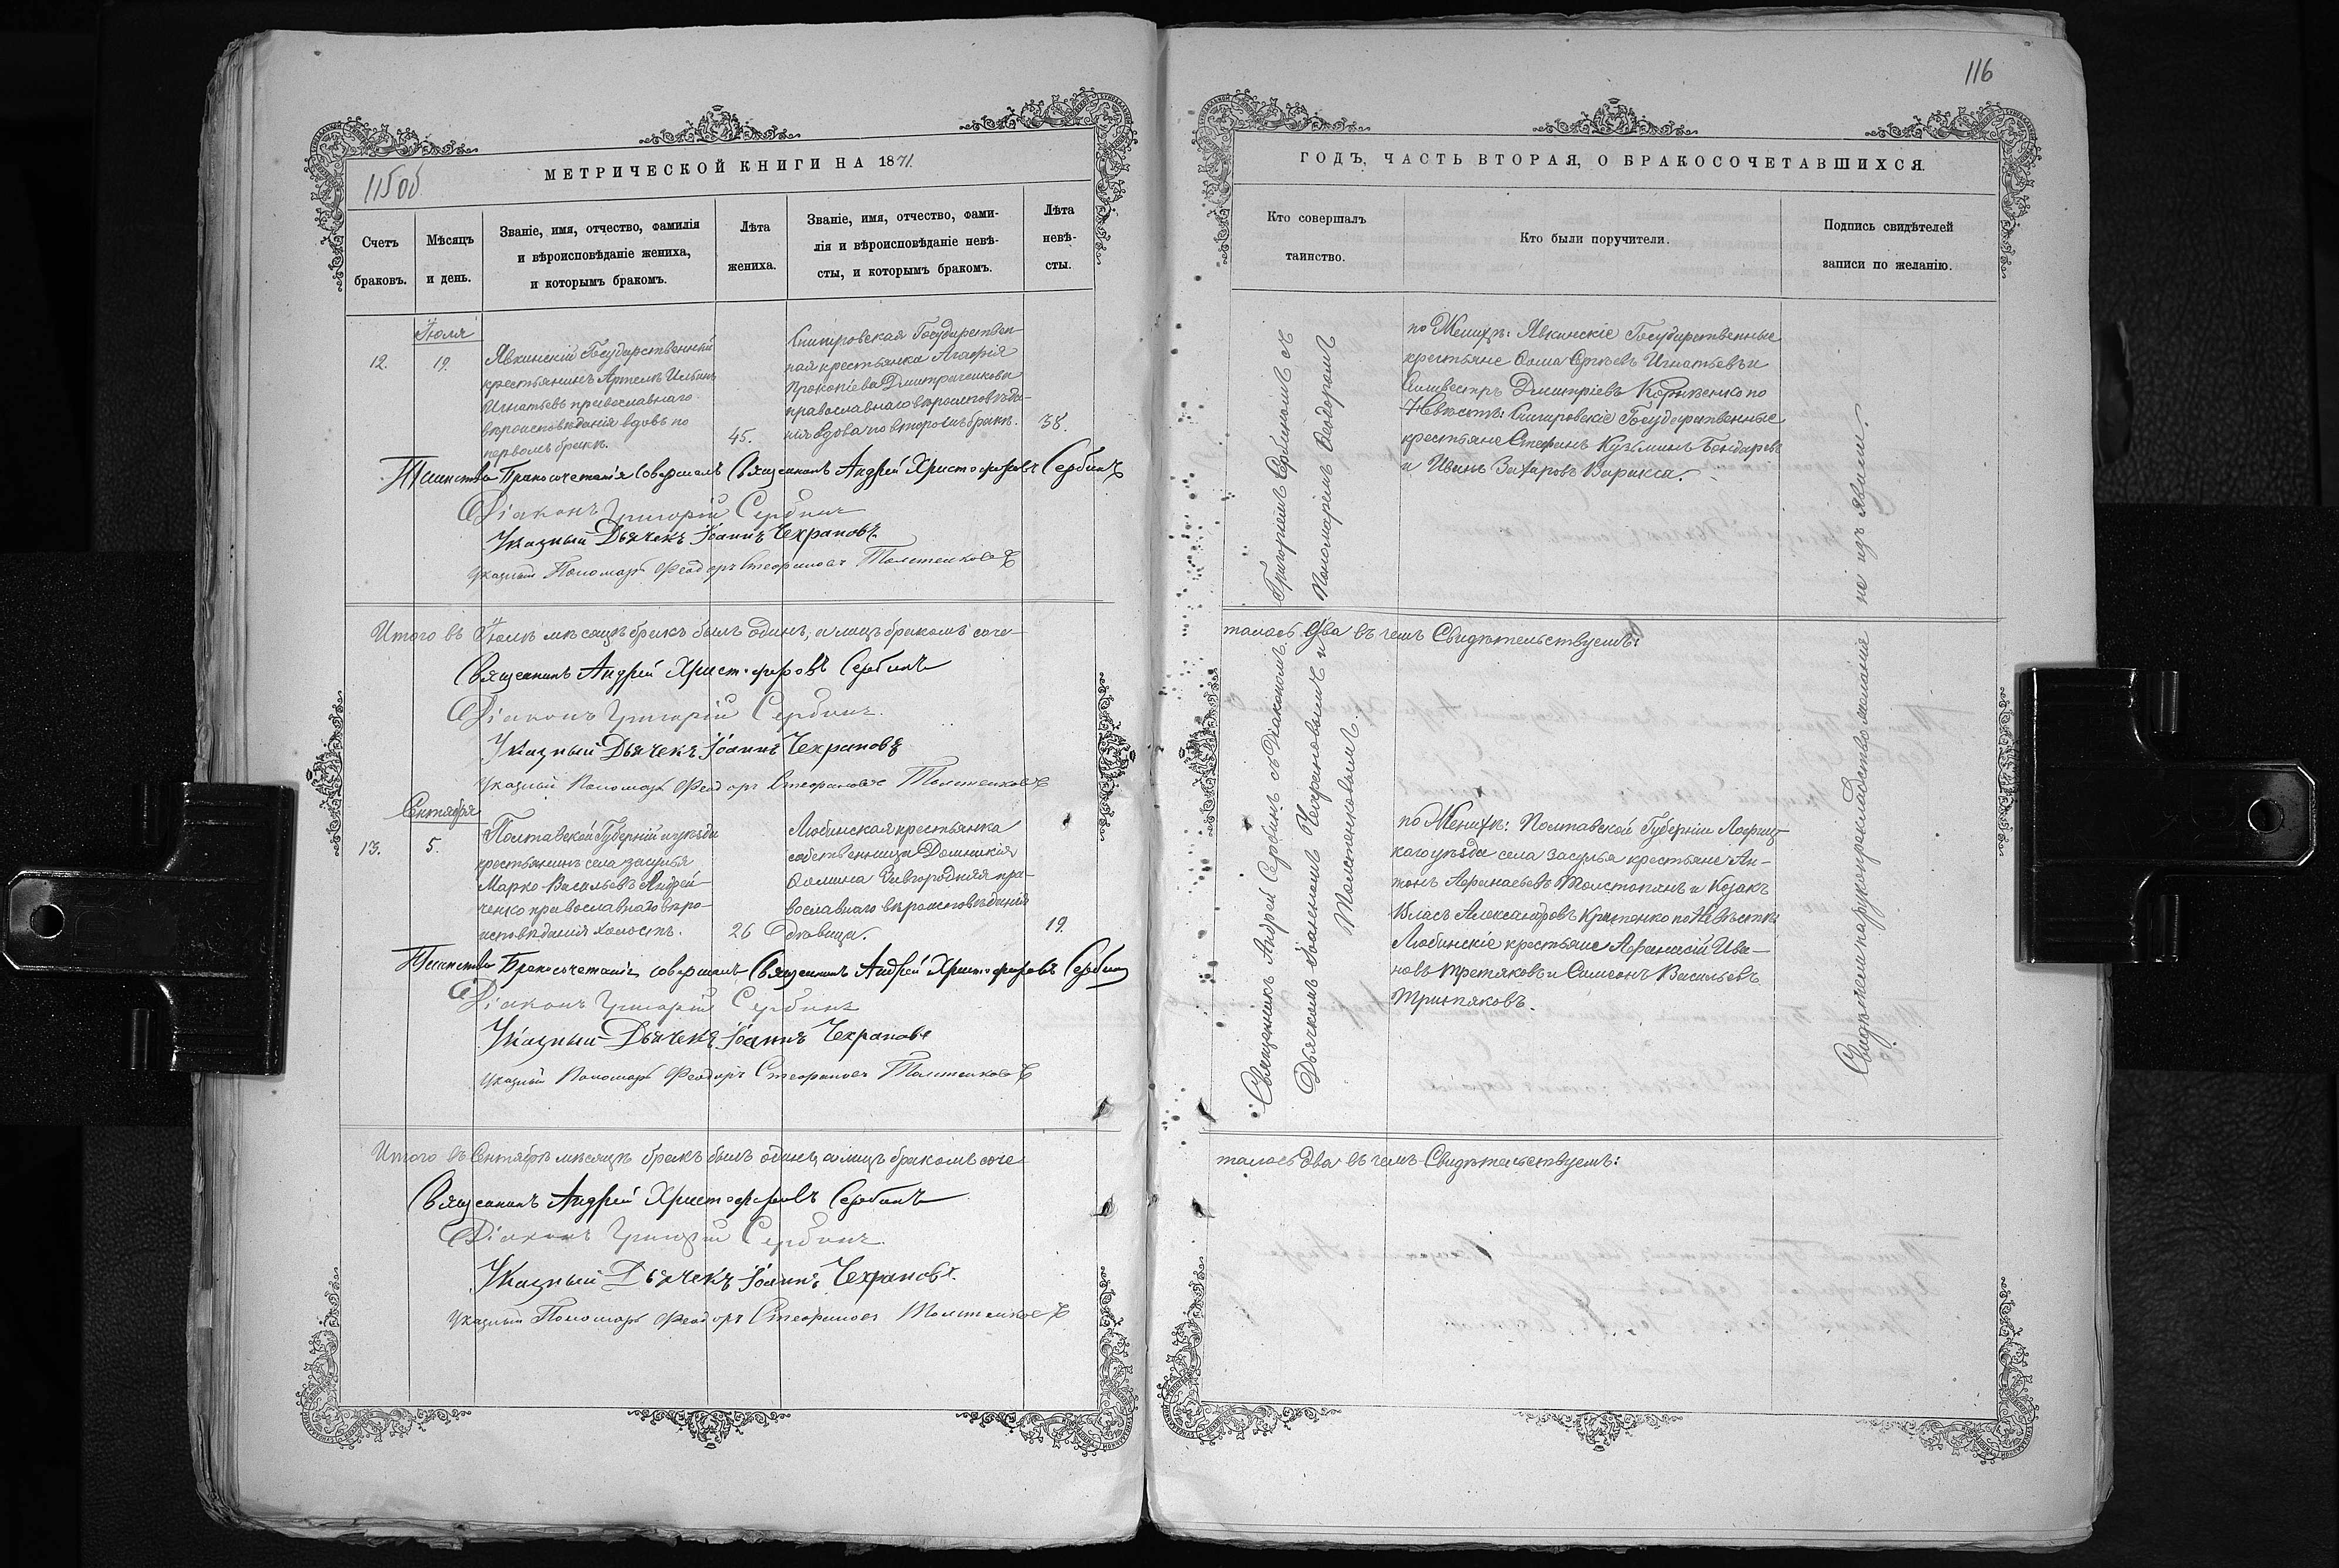 115 об.
МЕТРИЧЕСКОЙ КНИГИ НА 1871.
Счетъ браковъ.
Мѣсяцъ и день.
Званіе, имя, отчество, фамилія
и вѣроисповѣданіе жениха,
и которымъ бракомъ.
Лѣта
жениха.
Званіе, имя, отчество, фами-
лія и вѣроисповѣданіе невѣ-
сты, и которымъ бракомъ.
Лѣта
невѣ-
сты.
Іюля
12.
19.
Явкинскій Государственный
крестьянинъ Артемъ
Игнатьевъ православнаго
вѣроисповѣданія вдовъ по
первомъ бракѣ.
45.
Снигировская Государствен-
ная крестьянка Агафія
Прокопіева Дмитраченкова
православнаго вѣроисповѣда-
нія вдова по второмъ бракѣ.
38.
Таинство Бракосочетанія совершалъ Священникъ Андрей Христофоровъ Сербинъ
Діаконъ Григорій Сербинъ
Указный Дьячекъ Іоаннъ Чехрановъ
Указный Пономарь Феодоръ Стефановъ Толстенковъ
Итого въ Іюлѣ мѣсяцѣ бракъ былъ одинъ, а лицъ бракомъ соче-
Священникъ Андрей Христофоровъ Сербинъ
Діаконъ Григорій Сербинъ
Указный Дьячекъ Іоаннъ Чехрановъ
Указный Пономарь Феодоръ Стефановъ Толстенковъ
Сентября
13.
5.
Полтавской Губерніи и уѣзда
крестьянинъ села Засулья
Марко Васильевъ Андрей-
ченко православнаго вѣро-
исповѣданія холостъ.
26
Любинская крестьянка
собственница Домникія
Фомина Завгородняя пра-
вославнаго вѣроисповѣданія
дѣвица.
19.
Таинство Бракосочетанія совершалъ Священникъ Андрей Христофоровъ Сербинъ
Діаконъ Григорій Сербинъ
Указный Дьячекъ Іоаннъ Чехрановъ
Указный Пономарь Феодоръ Стефановъ Толстенковъ
Итого въ Сентябрѣ мѣсяцѣ бракъ былъ одинъ, а лицъ бракомъ соче
Священникъ Андрей Христофоровъ Сербинъ
Діаконъ Григорій Сербинъ
Указный Дьячекъ Іоаннъ Чехрановъ.
Указный Пономарь Феодоръ Стефановъ Толстенковъ
116
ГОДЪ, ЧАСТЬ ВТОРАЯ, О БРАКОСОЧЕТАВШИХСЯ.
Кто совершалъ
таинство.
Кто были поручители.
Подпись свидѣтелей
записи по желанію.
Священникъ Андрей Сербинъ съ Діакономъ Григоріемъ Сербиномъ съ
Дьячкомъ Іоанномъ Чехрановымъ и Пономаремъ Феодоромъ
Толстенковымъ.
по Женихѣ: Явкинскіе Государственные
крестьяне Фома Сергѣевъ Игнатьевъ и
Силивестръ Дмитріевъ по
Невѣстѣ: Снигировскіе Государственные
крестьяне Стефанъ Кузьминъ Бондаревъ
и Иванъ Захаровъ Варакса.
талось Два въ чемъ Свидѣтельствуемъ:
по Женихѣ: Полтавской Губерніи Лохвиц-
каго уѣзда села Засулья крестьяне Ан-
тонъ Афанасьевъ Толстопянъ и Козакъ
Власъ Александровъ по Невѣстѣ
Любинскіе крестьяне Афанасій Ива-
новъ Третяковъ и Симеонъ Васильевъ
Третяковъ.
талось Два въ чемъ Свидѣтельствуемъ: